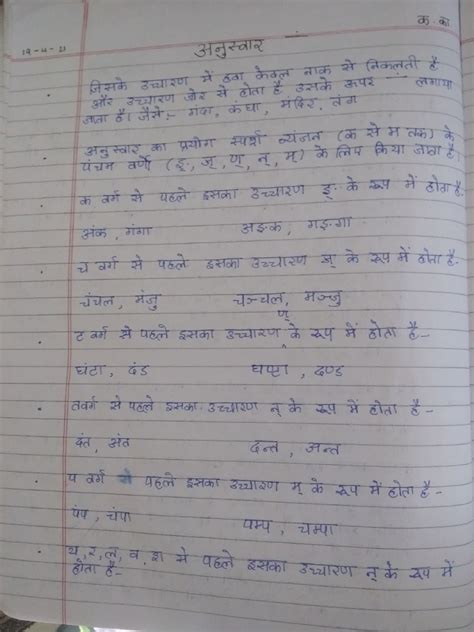 क. का.
19-4-21
अनुस्वार
जिसके उच्चारण में हवा केवल नाक से निकलती है
और उच्चारण जोर से होता है, उसके ऊपर लगाया
जाता है। जैसे:- गंदा, कंघा, मंदिर, तंग
अनुस्वार का प्रयोग स्पर्श व्यंजन (क से म तक) के
पंचम वर्णो (ङ्, ञ्, ण्, न्, म्) के लिए किया जाता है।
क वर्ग से पहले इसका उच्चारण ङ् के रूप में होता है
अंक, गंगा अङ्क, गङ्गा
च वर्ग से पहले इसका उच्चारण ञ् के रूप में होता है-
चंचल, मंजु चञ्चल, मञ्जु
ट वर्ग से पहले इसका उच्चारण ण् के रूप में होता है-
घंटा, दंड घण्टा, दण्ड
तवर्ग से पहले इसका उच्चारण न् के रूप में होता है-
दंत, अंत दन्त, अन्त
प वर्ग से पहले इसका उच्चारण म् के रूप में होता है-
पंप, चंपा पम्प, चम्पा
य, र, ल, व, श से पहले इसका उच्चारण न् के रूप में
होता है-